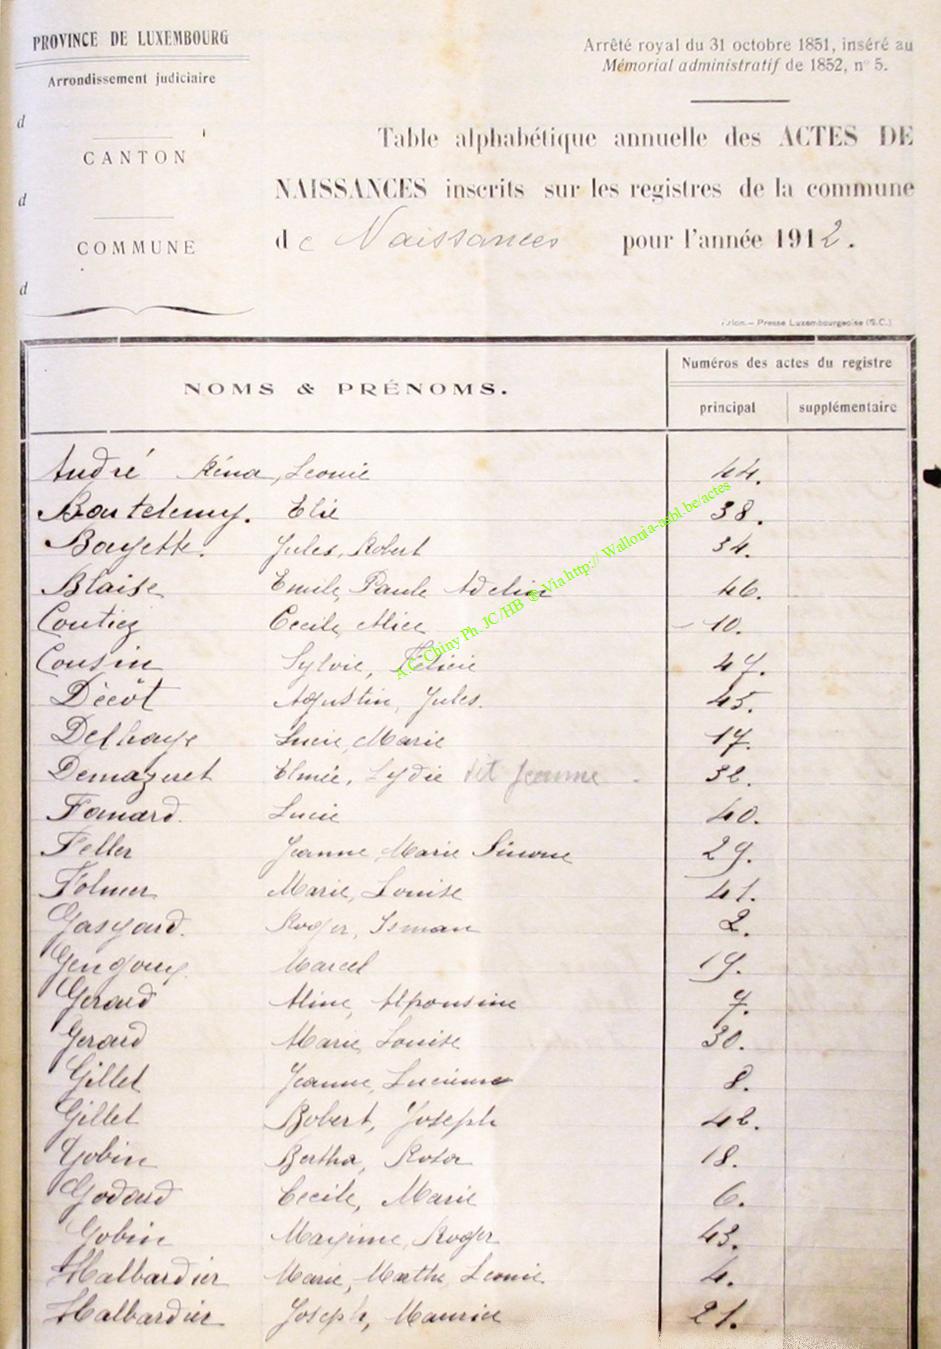 PROVINCE DE LUXEMBOURG
Arrondissement judiciaire
d
CANTON
d
COMMUNE
d
Arrêté royal du 31 octobre 1851, inséré au
Mémorial administratif de 1852, n° 5.
Table alphabétique annuelle des ACTES DE
NAISSANCES inscrits sur les registres de la commune
de Naissances pour l'année 1912.
Arlon.— Presse Luxembourgeoise (S.C.)
NOMS & PRÉNOMS.
Numéros des actes du registre
principal supplémentaire
André Réna, Leonie 44.
Bartelemy. Elie 38.
Bayette. Jules, Robert 34.
Blaise Emile, Paule Adelin 46.
Coutiez Cecile, Alice 10.
Cousin Sylvie, Félicie 47.
Décôt Agustin, Jules. 45.
Delhaye Lucie, Marie 17.
Demazuret Elmée, Lydie dit Jeanne 32.
Famard. Lucie 40.
Feller Jeanne, Marie Simone 29.
Folmer Marie, Louise 41.
Gaspard. Roger, Isman 2.
Gengoux. Marcel 19.
Gerard Aline, Alponsine 7.
Gerard Marie, Louise 30.
Gillet Jeanne, Lucienne 8.
Gillet Robert, Joseph 42.
Gobin Bertha, Rosa 18.
Godard Cecile, Marie 6.
Gobin Maxime, Roger 43.
Halbardier Marie, Marthe, Leonie. 4.
Halbardier Joseph, Maurice 21.
A.C. Chiny Ph. JC/HB ® Via http:// Wallonia-asbl.be/actes